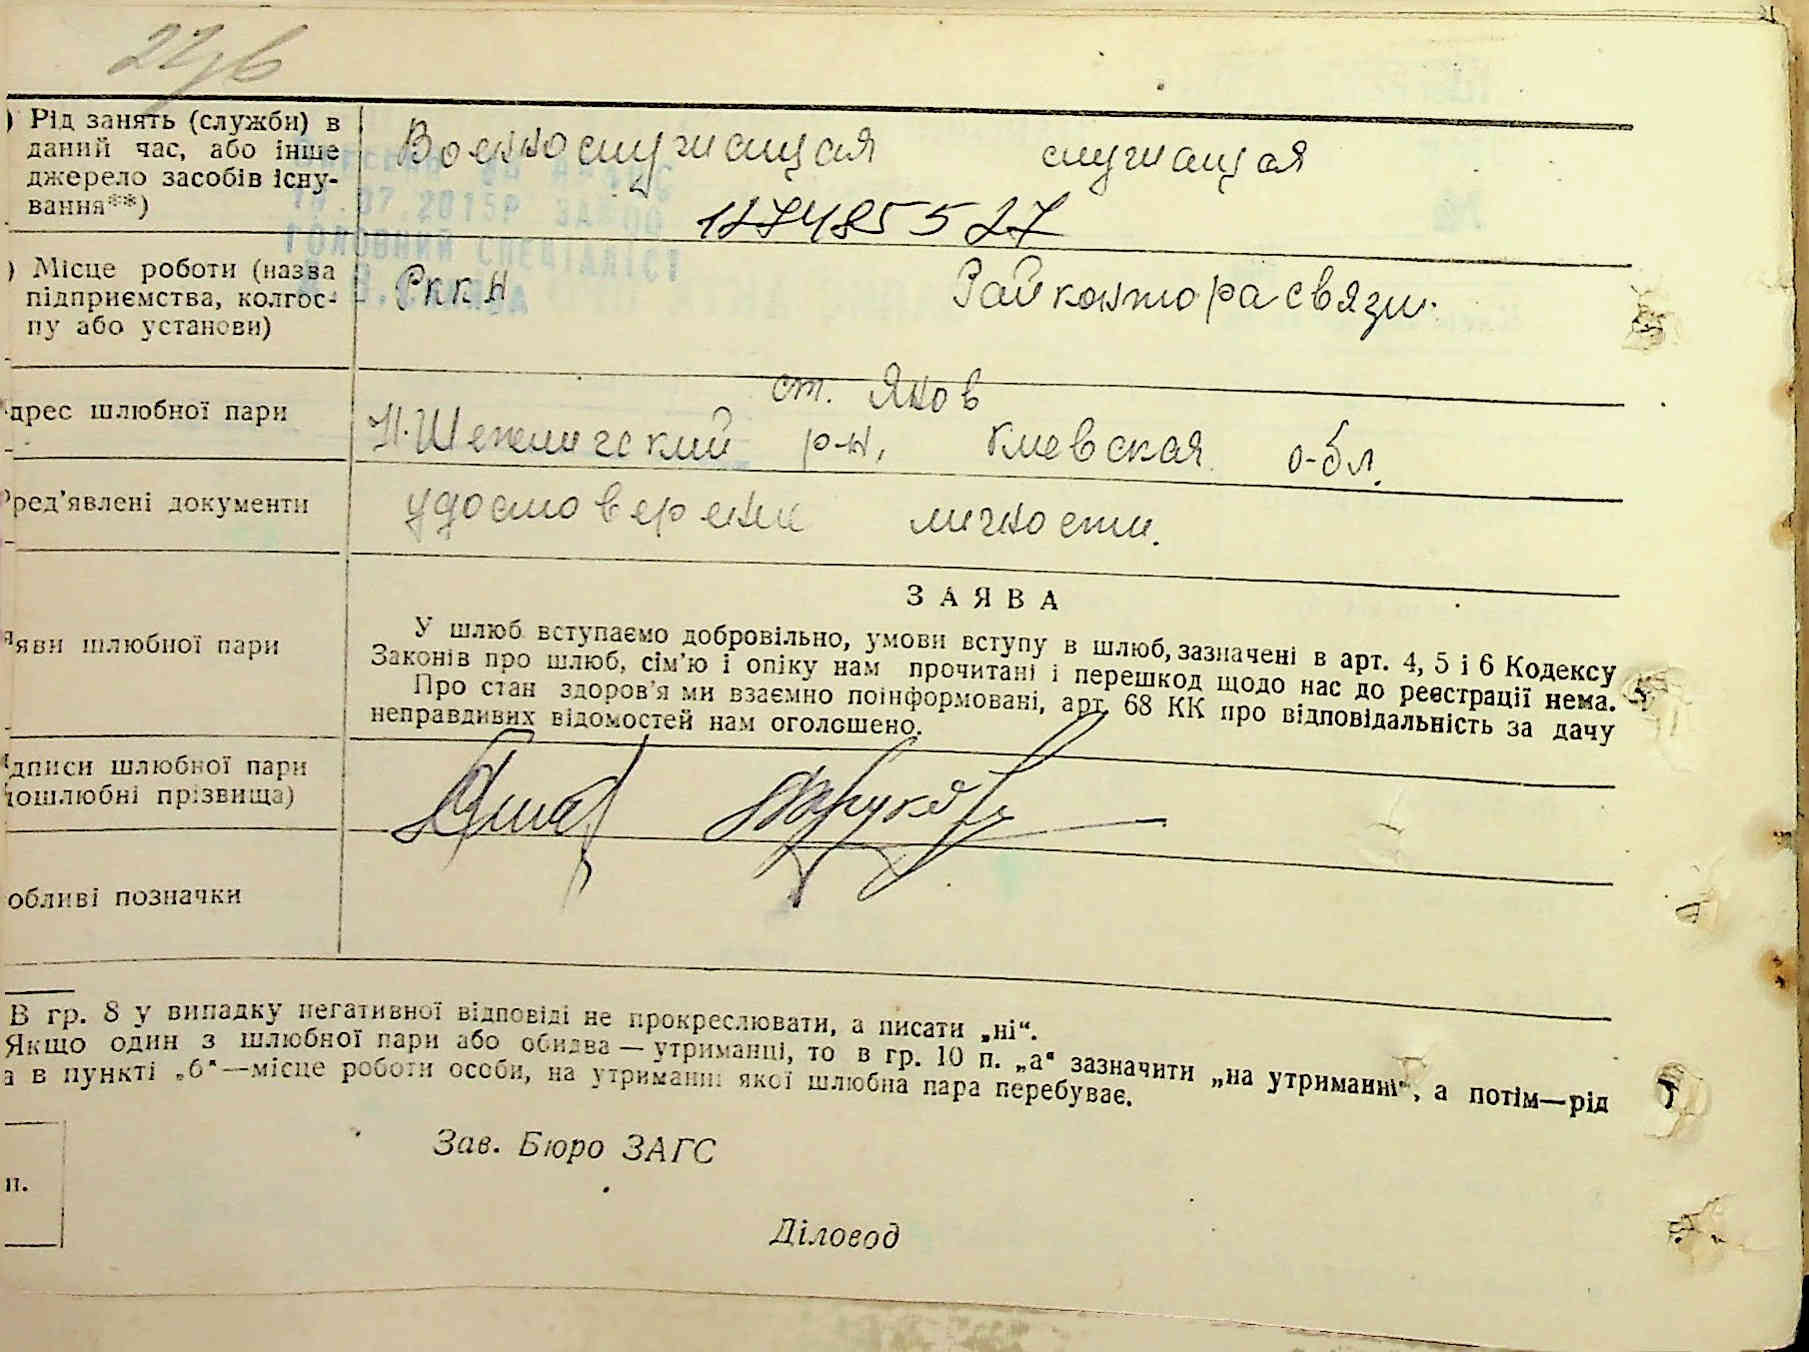 ) Рід занять (служби) в
даний час, або інше
джерело засобів існу-
вання**)
Военнослужащая служащая
127485527
19.07.2015Р
ГОЛОВНИЙ СПЕЦІАЛІСТ
) Місце роботи (назва
підприємства, колгос-
пу або установи)
РККА Райконтора связи.
дрес шлюбної пари
ст. Янов
Н.Шепеличский р-н, Киевская обл.
ред’явлені документи
удостоверение личности.
З А Я В А
яви шлюбної пари
У шлюб вступаємо добровільно, умови вступу в шлюб, зазначені в арт. 4, 5 і 6 Кодексу
Законів про шлюб, сім’ю і опіку нам прочитані і перешкод щодо нас до реєстрації нема.
Про стан здоров’я ми взаємно поінформовані, арт. 68 КК про відповідальність за дачу
неправдивих відомостей нам оголошено.
дписи шлюбної пари
дошлюбні прізвища)
обливі позначки
В гр. 8 у випадку негативної відповіді не прокреслювати, а писати „ні“.
Якщо один з шлюбної пари або обидва — утриманці, то в гр. 10 п. „а“ зазначити „на утриманні“, а потім—рід
а в пункті „б“—місце роботи особи, на утриманні якої шлюбна пара перебуває.
Зав. Бюро ЗАГС
п.
Діловод